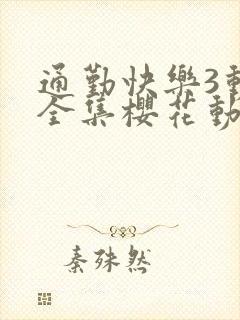 通勤快樂3動
全集櫻花動
秦殊然